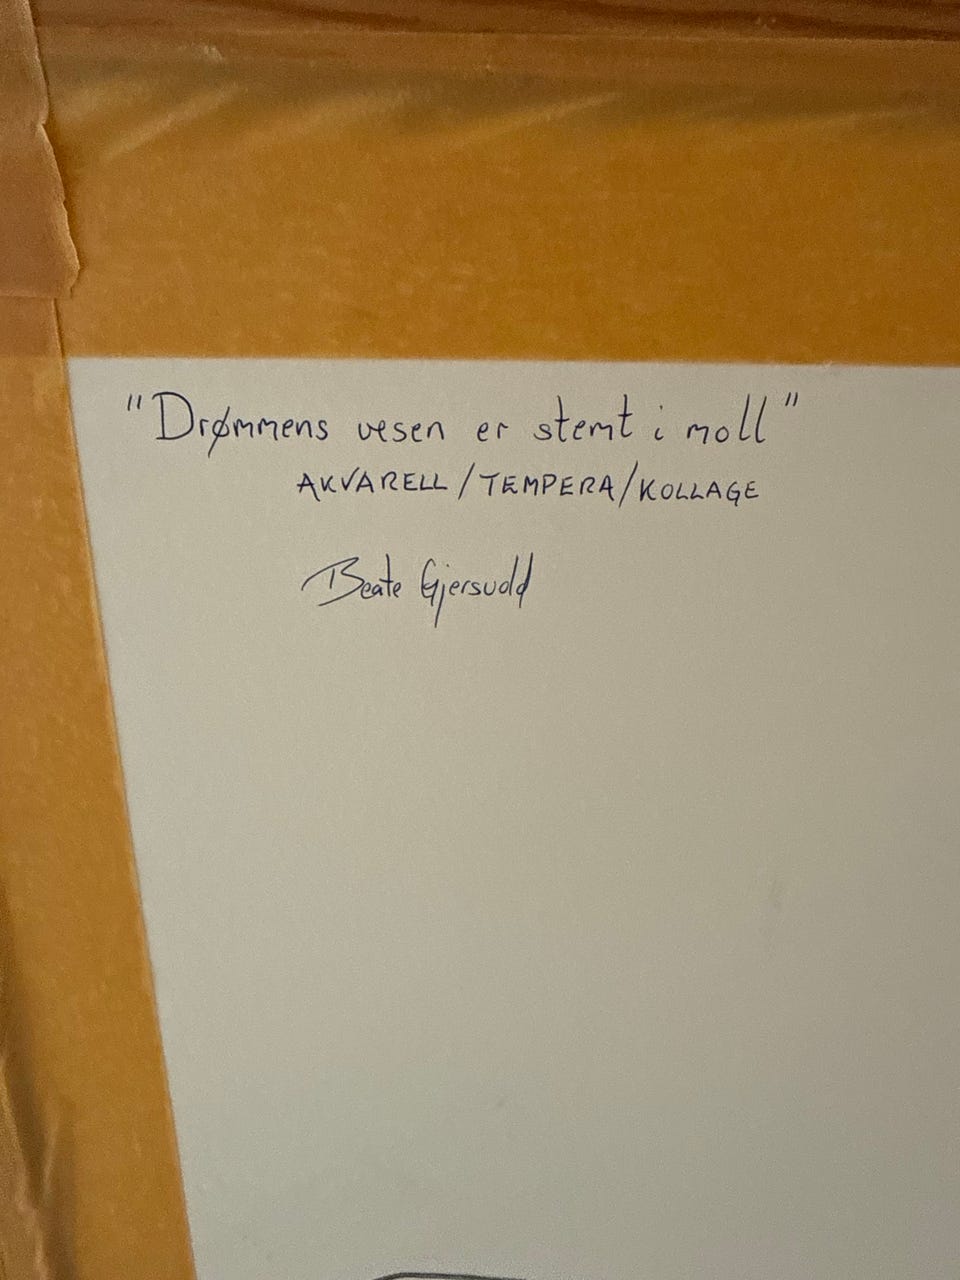 "Drømmens vesen er stemt i moll"
AKVARELL/TEMPERA/KOLLAGE
Beate Gjersvold